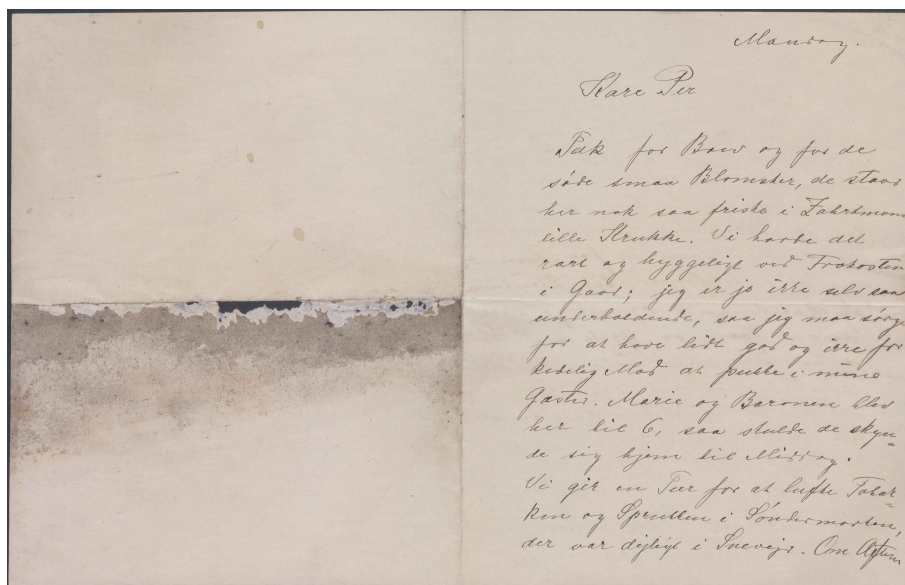 Mandag.
Kære Per
Tak for Brev og for de
søde smaa Blomster, de staar
her nok saa friske i Zahrtmanns
lille Krukke. Vi havde det
rart og hyggeligt ved Frokosten
i Gaar; jeg er jo ikke selv saa
underholdende, saa jeg maa sørge
for at have lidt god og ikke for
kedelig Mad at putte i mine
Gæster. Marie og Baronen blev
her til 6, saa skulde de skyn=
de sig hjem til Middag.
Vi gik en Tur for at lufte
og i Søndermarken,
der var dejligt i Snevejr. Om Aften